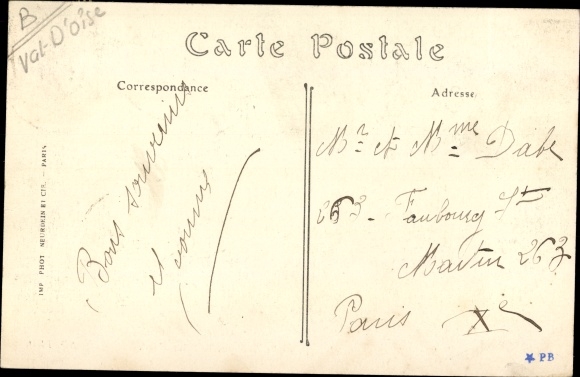 B
Val-D'Oise
Carte Postale
Correspondance
Adresse
Bons souvenirs
et
Mr et Mme Dabe
263 - Faubourg St
Martin 263
Paris Xe
IMP. PHOT. NEURDEIN ET CIE. — PARIS
★ PB